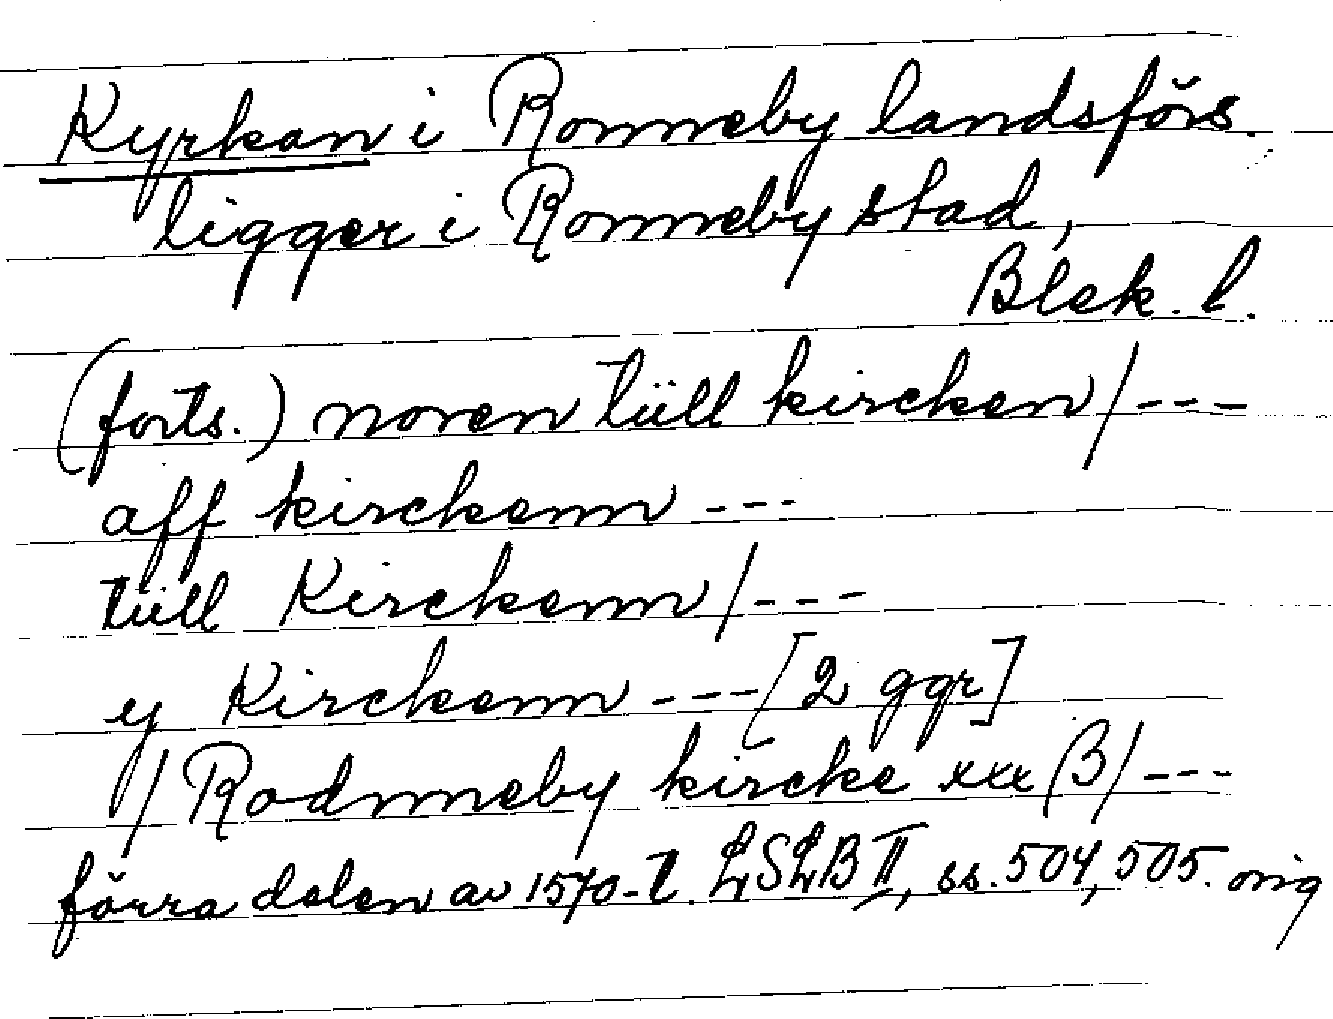 Kyrkan i Ronneby landsförs.
ligger i Ronneby stad,
Blek. l.
(forts.) noren tüll kircken / ---
aff kirckenn ---
tüll Kirckenn / ---
y Kirckenn --- [2 ggr]
/ Rodnneby kircke xxx (3/ ---
förra delen av 1570-t. LSLB II, ss. 504, 505. orig